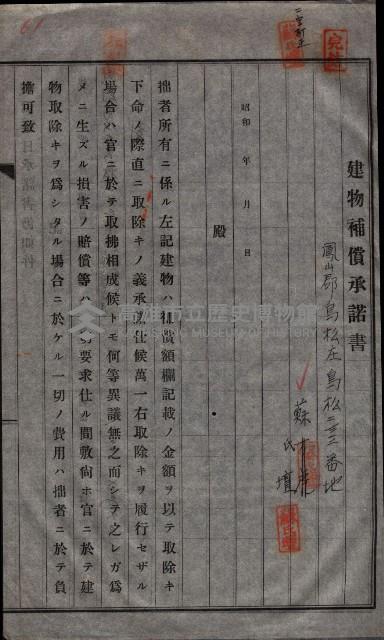 建物補償承諾書
鳳山郡鳥松庄鳥松二三二番地
蘇
氏壇
昭和 年 月 日
殿
拙者所有ニ係ル左記建物ハ補償額欄記載ノ金額ヲ以テ取除キ
下命ノ際直ニ取除キノ義承諾仕候萬一右取除キヲ履行セザル
場合ハ官ニ於テ取拂相成候トモ何等異議無之而シテ之レガ爲
メニ生ズル損害ノ賠償等ハ一切要求仕ル間敷尙ホ官ニ於テ建
物取除キヲ爲シタル場合ニ於ケル一切ノ費用ハ拙者ニ於テ負
擔可致
高雄市立歷史博物館
二字訂正
61